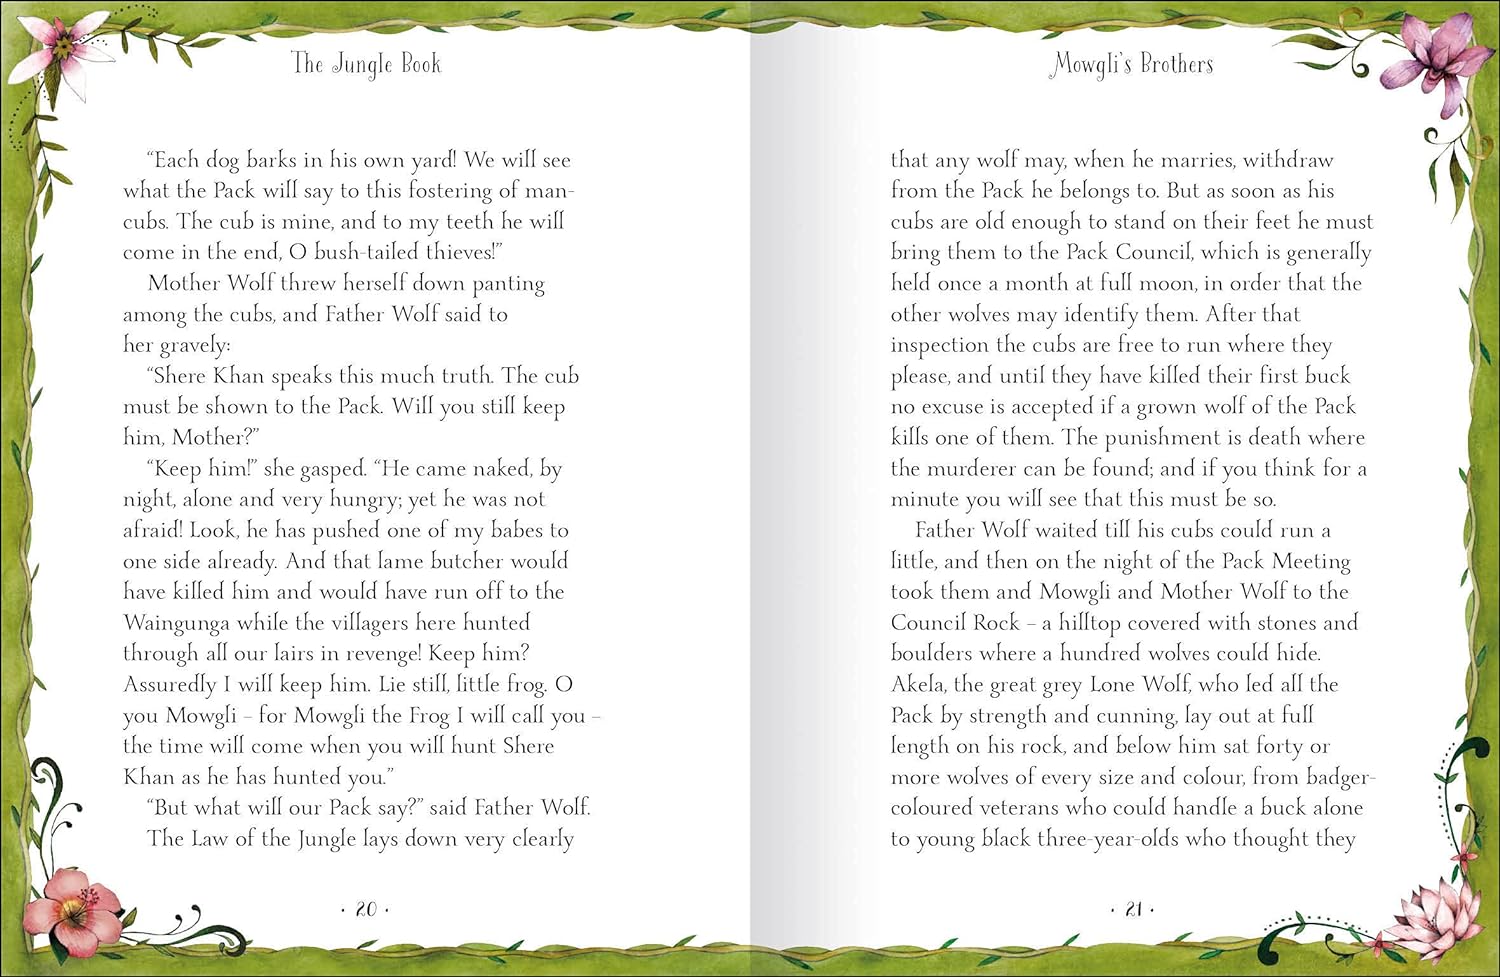 The Jungle Book
“Each dog barks in his own yard! We will see
what the Pack will say to this fostering of man-
cubs. The cub is mine, and to my teeth he will
come in the end, O bush-tailed thieves!”
Mother Wolf threw herself down panting
among the cubs, and Father Wolf said to
her gravely:
“Shere Khan speaks this much truth. The cub
must be shown to the Pack. Will you still keep
him, Mother?”
“Keep him!” she gasped. “He came naked, by
night, alone and very hungry; yet he was not
afraid! Look, he has pushed one of my babes to
one side already. And that lame butcher would
have killed him and would have run off to the
Waingunga while the villagers here hunted
through all our lairs in revenge! Keep him?
Assuredly I will keep him. Lie still, little frog. O
you Mowgli – for Mowgli the Frog I will call you –
the time will come when you will hunt Shere
Khan as he has hunted you.”
“But what will our Pack say?” said Father Wolf.
The Law of the Jungle lays down very clearly
· 20 ·
Mowgli’s Brothers
that any wolf may, when he marries, withdraw
from the Pack he belongs to. But as soon as his
cubs are old enough to stand on their feet he must
bring them to the Pack Council, which is generally
held once a month at full moon, in order that the
other wolves may identify them. After that
inspection the cubs are free to run where they
please, and until they have killed their first buck
no excuse is accepted if a grown wolf of the Pack
kills one of them. The punishment is death where
the murderer can be found; and if you think for a
minute you will see that this must be so.
Father Wolf waited till his cubs could run a
little, and then on the night of the Pack Meeting
took them and Mowgli and Mother Wolf to the
Council Rock – a hilltop covered with stones and
boulders where a hundred wolves could hide.
Akela, the great grey Lone Wolf, who led all the
Pack by strength and cunning, lay out at full
length on his rock, and below him sat forty or
more wolves of every size and colour, from badger-
coloured veterans who could handle a buck alone
to young black three-year-olds who thought they
· 21 ·